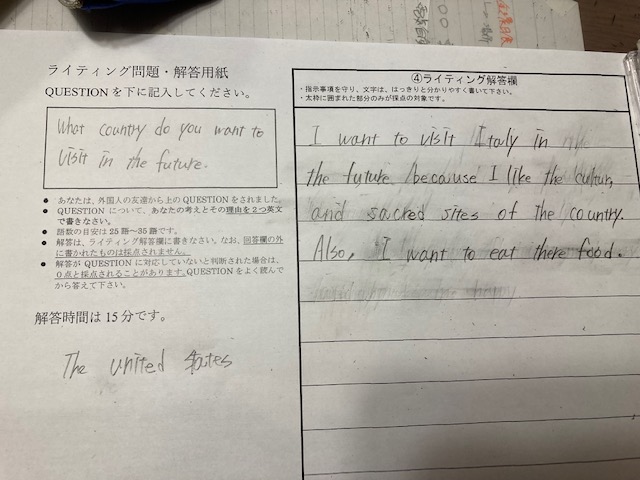 ライティング問題・解答用紙
QUESTIONを下に記入してください。
What country do you want to
visit in the future.
● あなたは、外国人の友達から上のQUESTIONをされました。
● QUESTIONについて、あなたの考えとその理由を2つ英文
で書きなさい。
● 語数の目安は25語～35語です。
● 解答は、ライティング解答欄に書きなさい。なお、回答欄の外
に書かれたものは採点されません。
● 解答がQUESTIONに対応していないと判断された場合は、
0点と採点されることがあります。QUESTIONをよく読んで
から答えて下さい。
解答時間は15分です。
The united States
④ライティング解答欄
・指示事項を守り、文字は、はっきりと分かりやすく書いて下さい。
・太枠に囲まれた部分のみが採点の対象です。
I want to visit Italy in
the future because I like the
and sacred sites of the country.
Also, I want to eat there food.